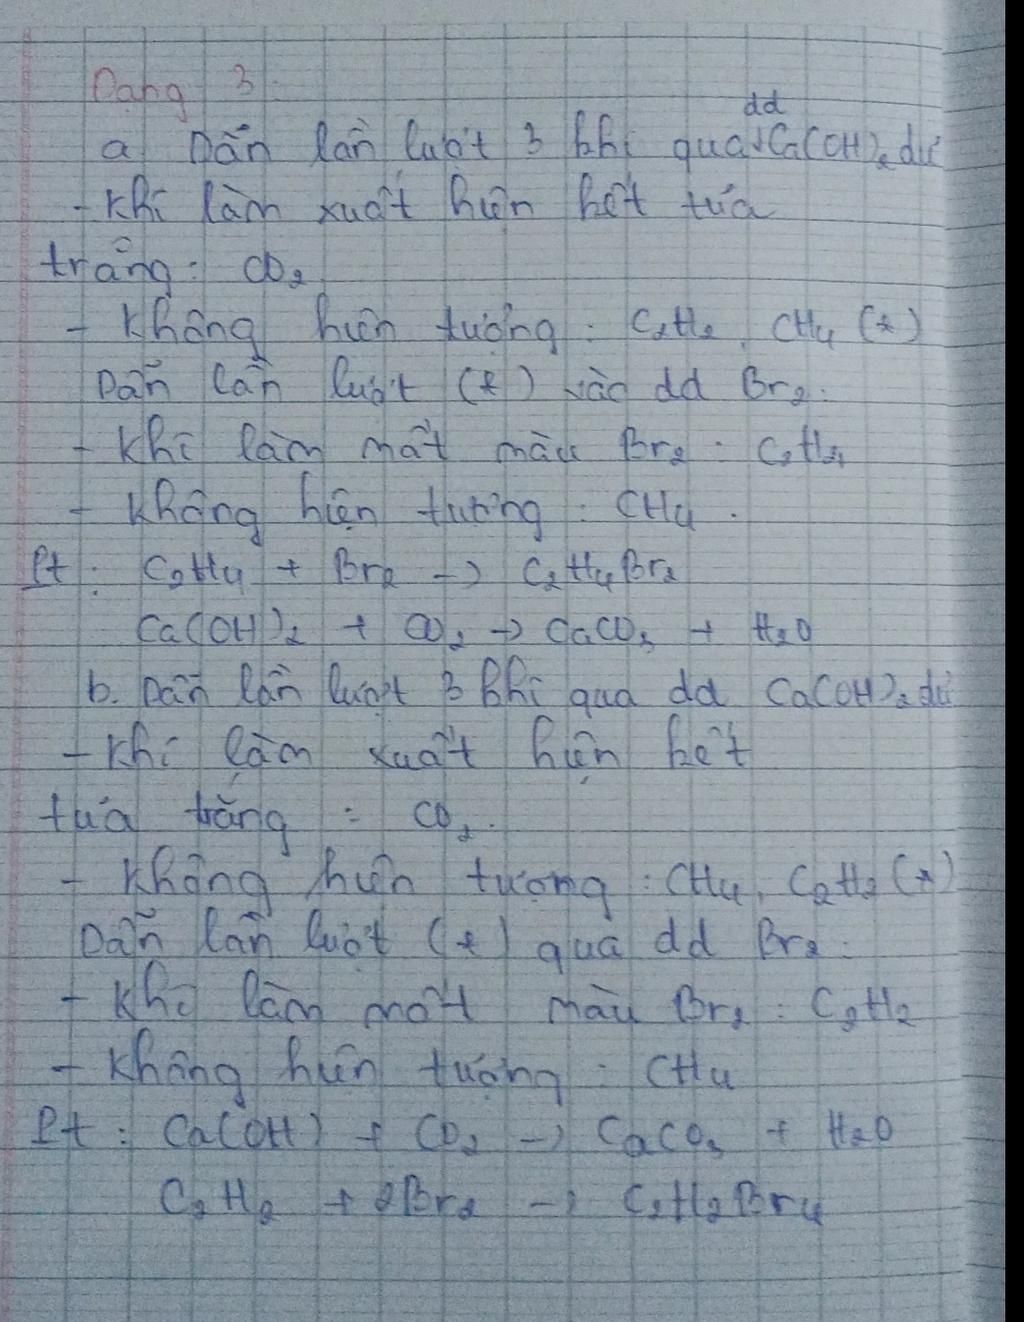 Dạng 3
dd
a) Dẫn lần lượt 3 khí qua Ca(OH)₂ dư
- Khí làm xuất hiện kết tủa
trắng : CO₂
- Không hiện tượng : C₂H₂, CH₄ (*)
Dẫn lần lượt (*) vào dd Br₂.
- Khí làm mất màu Br₂ : C₂H₄
- Không hiện tượng : CH₄.
Pt : C₂H₄ + Br₂ -> C₂H₄Br₂
Ca(OH)₂ + CO₂ -> CaCO₃ + H₂O
b. Dẫn lần lượt 3 khí qua dd Ca(OH)₂ dư
- Khí làm xuất hiện kết
tủa trắng : CO₂.
- Không hiện tượng : CH₄, C₂H₂ (*)
Dẫn lần lượt (*) qua dd Br₂ :
- Khí làm mất màu Br₂ : C₂H₂
- Không hiện tượng : CH₄
Pt : Ca(OH) + CO₂ -> CaCO₃ + H₂O
C₂H₂ + 2Br₂ -> C₂H₂Br₄